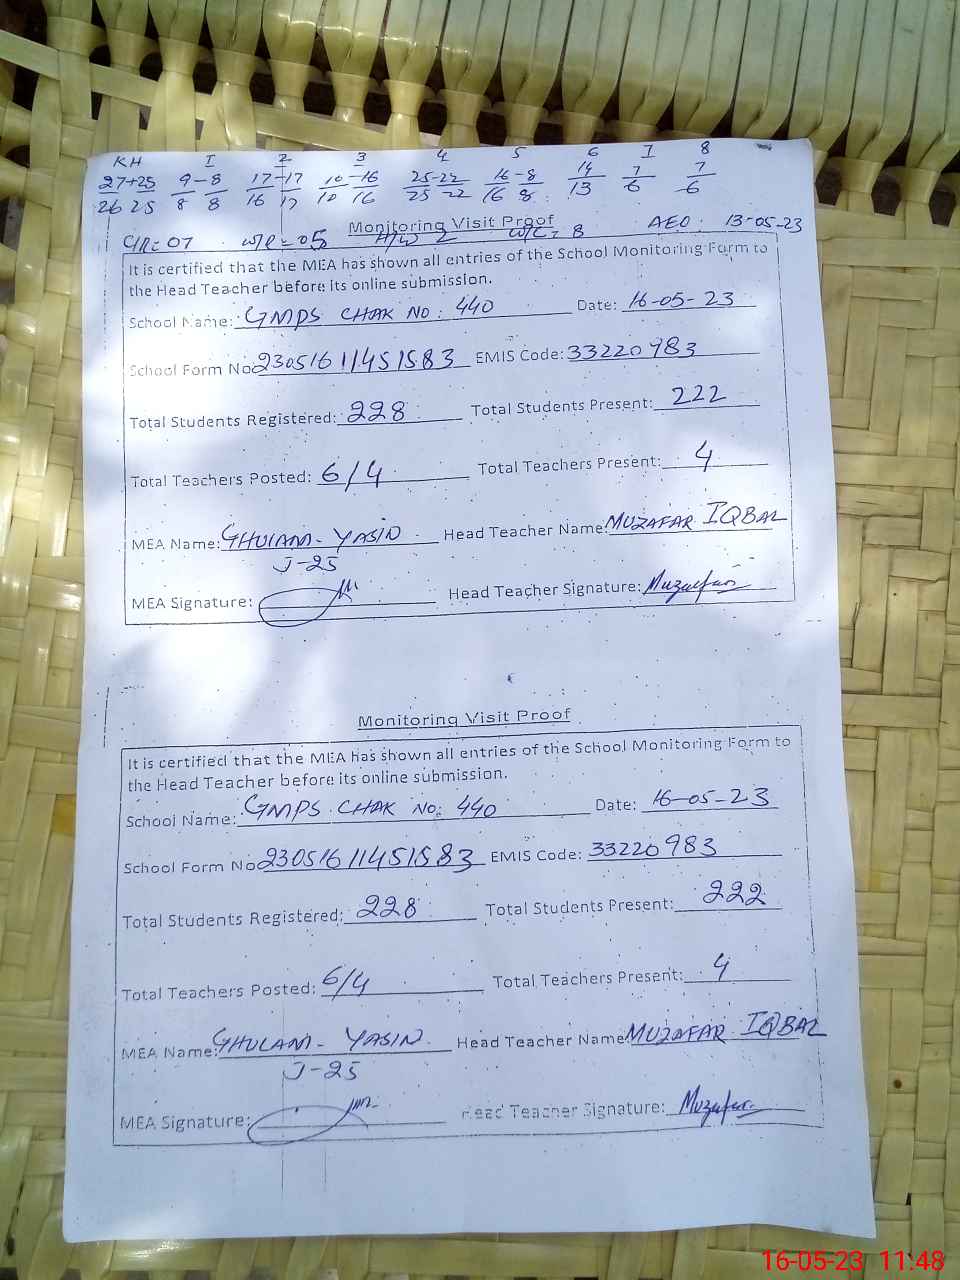 KH I 2 3 4 5 6 I 8
27+25 9-8 17-17 10-16 25-22 16-8 14 7 7
26 25 8 8 16 17 10 16 25 22 16 8 13 6 6
Monitoring Visit Proof
C/R=07 W/R=05 H/W 2 W/C=8 AEO: 13-05-23
It is certified that the MEA has shown all entries of the School Monitoring Form to
the Head Teacher before its online submission.
School Name: GMPS CHAK NO: 440 Date: 16-05-23
School Form No 23051611451583 EMIS Code: 33220983
Total Students Registered: 228 Total Students Present: 222
Total Teachers Posted: 6/4 Total Teachers Present: 4
MEA Name: GHULAM-YASIN Head Teacher Name: MUZAFAR IQBAL
J-25
MEA Signature: Head Teacher Signature: Muzafar
Monitoring Visit Proof
It is certified that the MEA has shown all entries of the School Monitoring Form to
the Head Teacher before its online submission.
School Name: GMPS CHAK NO: 440 Date: 16-05-23
School Form No 23051611451583 EMIS Code: 33220983
Total Students Registered: 228 Total Students Present: 222
Total Teachers Posted: 6/4 Total Teachers Present: 4
MEA Name: GHULAM-YASIN Head Teacher Name: MUZAFAR IQBAL
J-25
MEA Signature: Head Teacher Signature: Muzafar
16-05-23 11:48